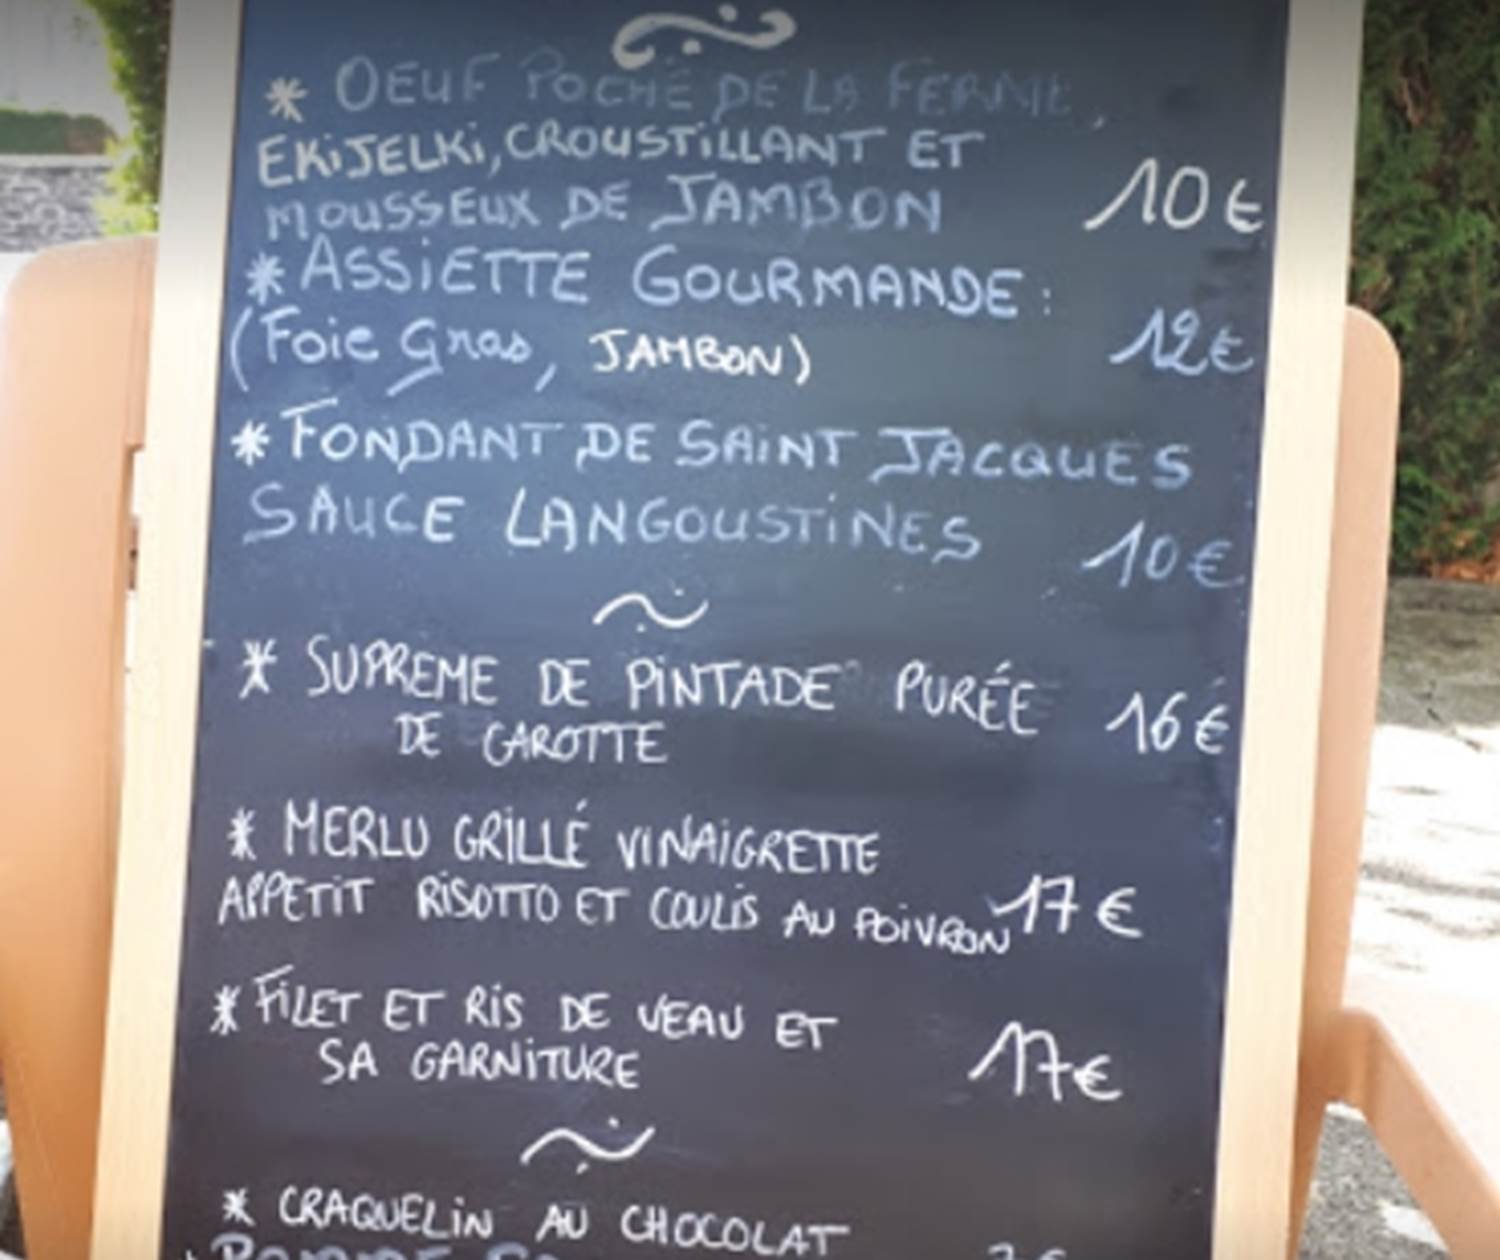 * OEUF POCHÉ DE LA FERME,
EKiJELKi, CROUSTiLLANT ET
MOUSSEUX DE JAMBON 10€
* ASSiETTE GOURMANDE :
(Foie Gras, JAMBON) 12€
* FONDANT DE SAiNT JACQUES
SAUCE LANGOUSTiNES 10€
* SUPREME DE PiNTADE PURÉE 16€
DE CAROTTE
* MERLU GRiLLÉ VINAiGRETTE
APPETiT RiSOTTO ET COULiS AU POiVRON 17€
* FiLET ET RiS DE VEAU ET
SA GARNiTURE 17€
* CRAQUELiN AU CHOCOLAT